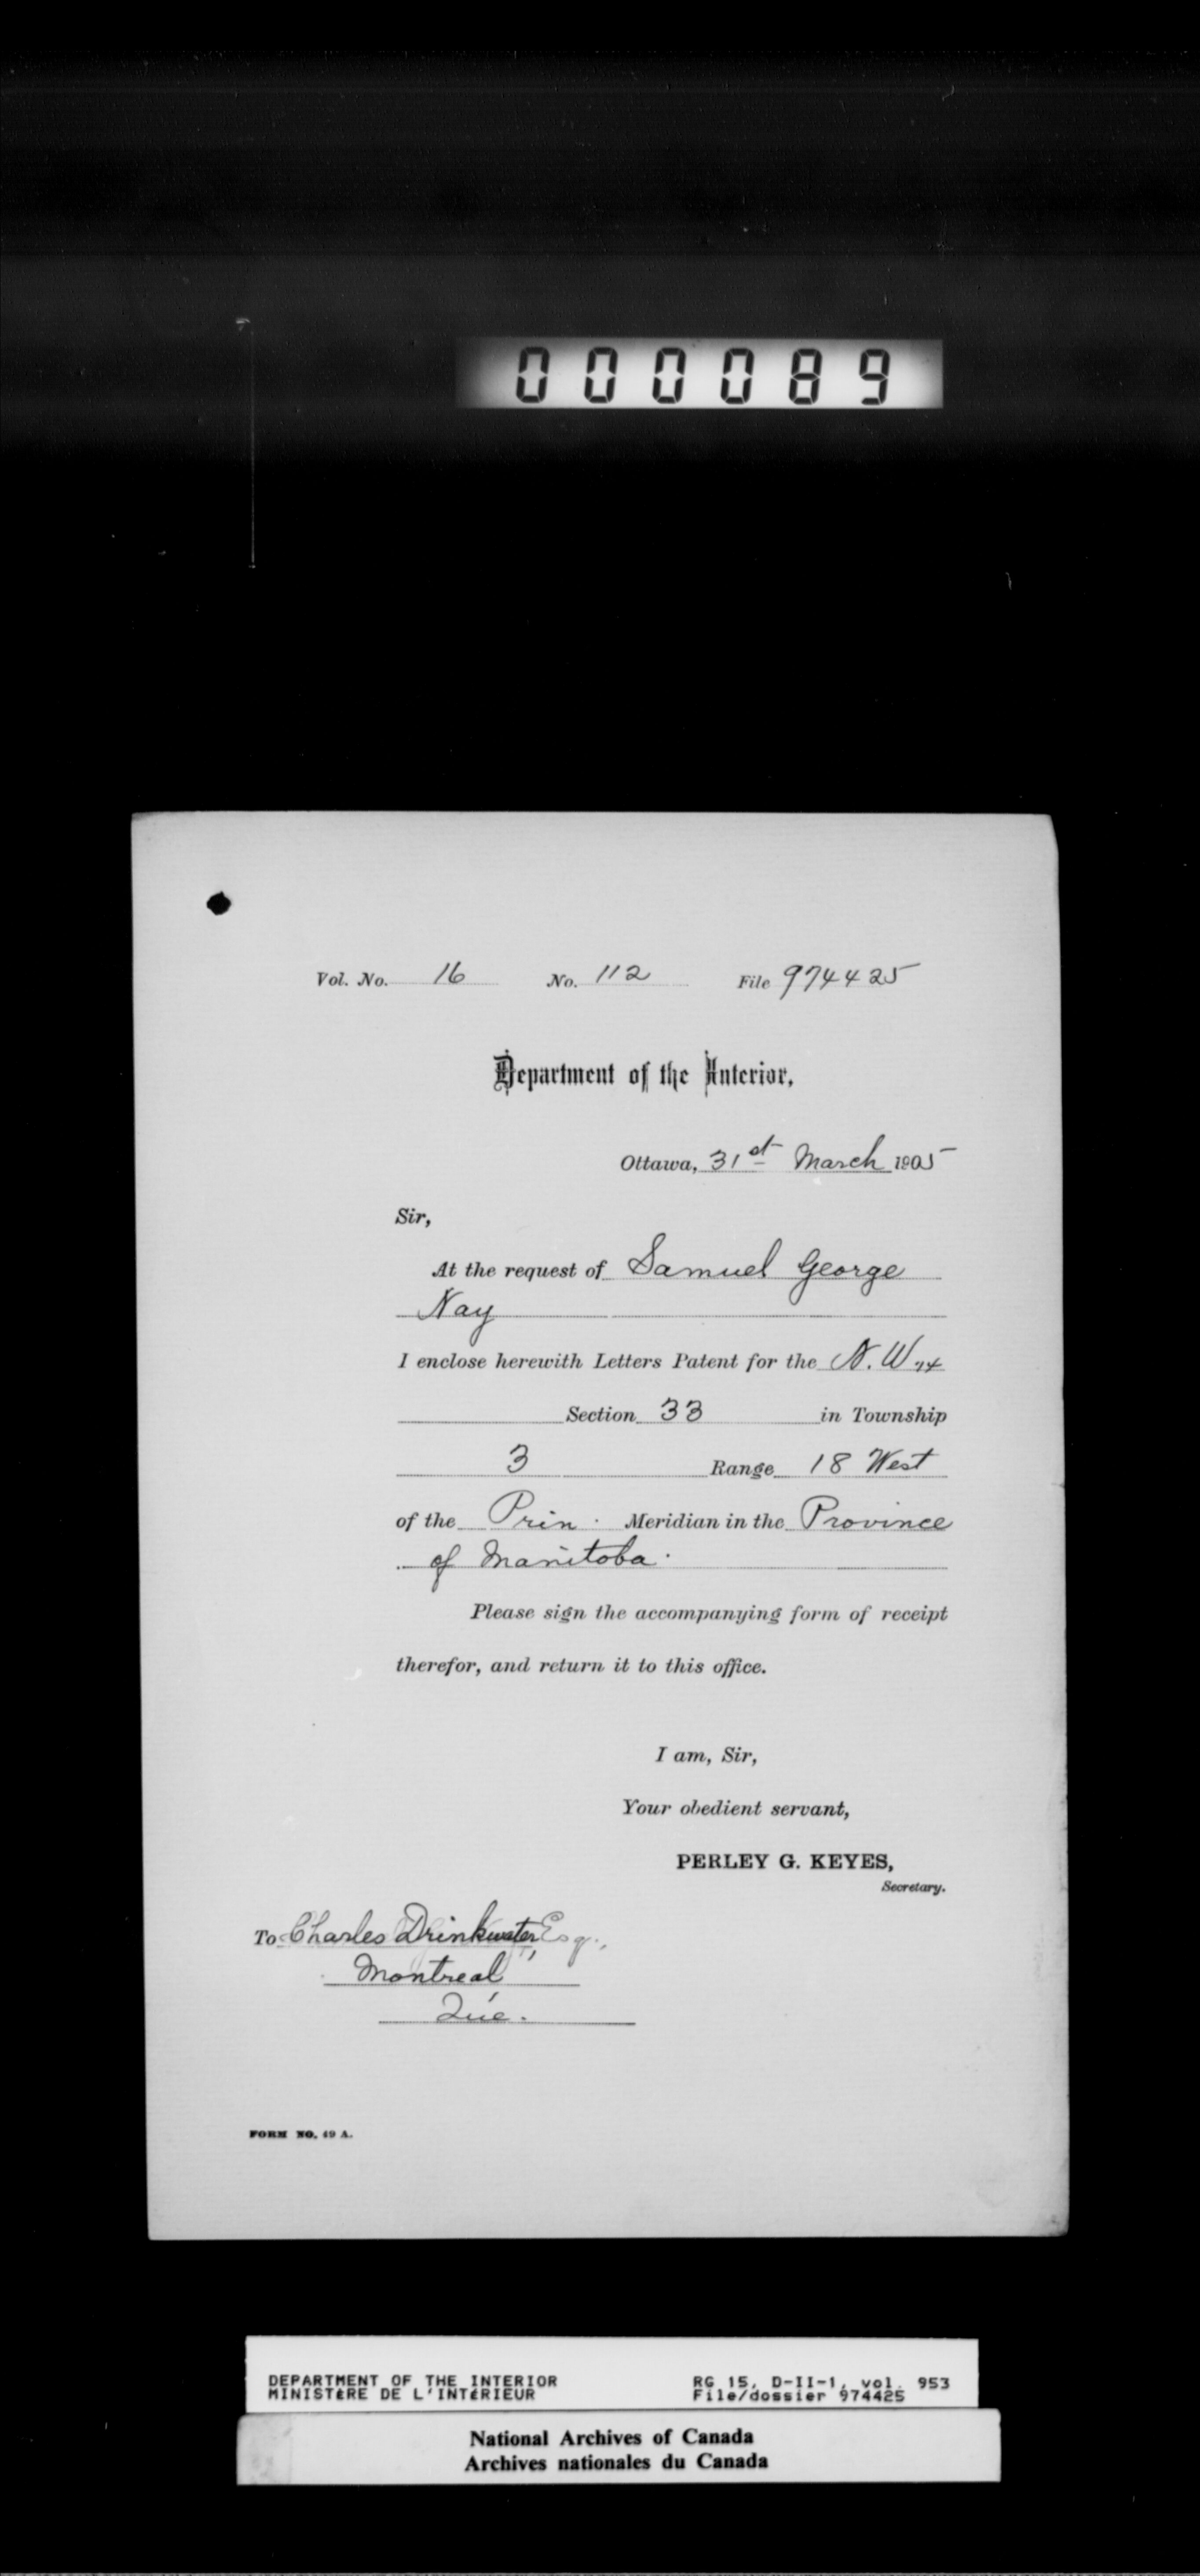 000089
Vol. No. 16 No. 112 File 974425
Department of the Interior,
Ottawa, 31st March 1905
Sir,
At the request of Samuel George
Nay
I enclose herewith Letters Patent for the N.W.¼
Section 33 in Township
3 Range 18 West
of the Prin. Meridian in the Province
of Manitoba.
Please sign the accompanying form of receipt
therefor, and return it to this office.
I am, Sir,
Your obedient servant,
PERLEY G. KEYES,
Secretary.
To Charles Drinkwater Esq.,
Montreal
Que.
FORM NO. 49 A.
DEPARTMENT OF THE INTERIOR RG 15, D-II-1, vol. 953
MINISTÈRE DE L'INTÉRIEUR File/dossier 974425
National Archives of Canada
Archives nationales du Canada